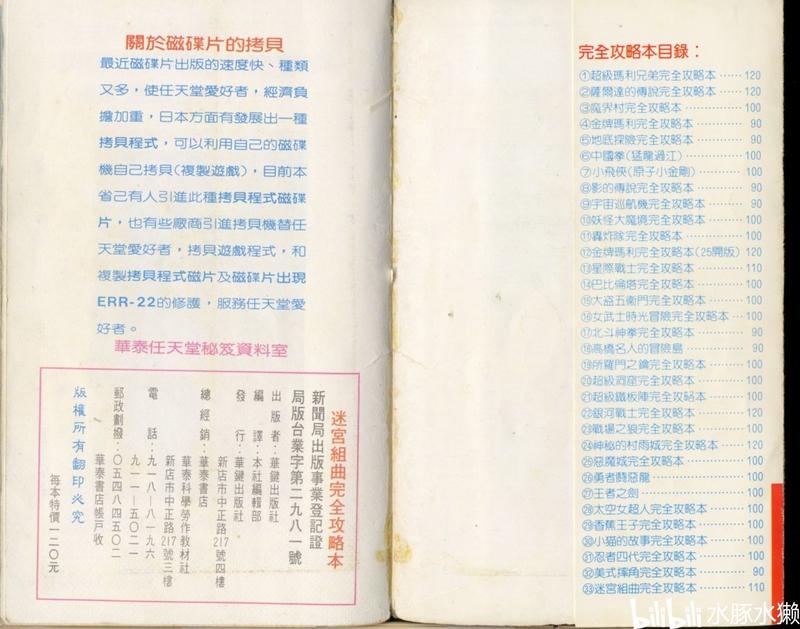 關於磁碟片的拷貝
最近磁碟片出版的速度快、種類
又多，使任天堂愛好者，經濟負
擔加重，日本方面有發展出一種
拷貝程式，可以利用自己的磁碟
機自己拷貝(複製遊戲)，目前本
省己有人引進此種拷貝程式磁碟
片，也有些廠商引進拷貝機替任
天堂愛好者，拷貝遊戲程式，和
複製拷貝程式磁片及磁碟片出現
ERR-22的修護，服務任天堂愛
好者。
華泰任天堂秘笈資料室
迷宮組曲完全攻略本
新聞局出版事業登記證
局版台業字第二九八一號
出版者：華鍵出版社
編譯：本社編輯部
發行：華鍵出版社
新店市中正路217號四樓
總經銷：華泰書店
華泰科學勞作教材社
新店市中正路217號三樓
電話：九一八—八一九六
九一一—五０二一
郵政劃撥：０五四八四五０二
華泰書店帳戶收
版權所有翻印必究
每本特價一二０元
完全攻略本目錄：
①超級瑪利兄弟完全攻略本……120
②薩爾達的傳說完全攻略本……120
③魔界村完全攻略本…………100
④金牌瑪利完全攻略本………90
⑤地底探險完全攻略本………90
⑥中國拳(猛龍過江)…………100
⑦小飛俠(原子小金剛)………100
⑧影的傳說完全攻略本………90
⑨宇宙巡航機完全攻略本……90
⑩妖怪大魔境完全攻略本……100
⑪轟炸隊完全攻略本…………100
⑫金牌瑪利完全攻略本(25開版) 120
⑬星際戰士完全攻略本………110
⑭巴比倫塔完全攻略本………100
⑮大盜五衛門完全攻略本……100
⑯女武士時光冒險完全攻略本…100
⑰北斗神拳完全攻略本………90
⑱高橋名人的冒險島…………90
⑲所羅門之鑰完全攻略本……100
⑳超級洞窟完全攻略本………100
㉑超級鐵板陣完全攻略本……100
㉒銀河戰士完全攻略本………120
㉓戰場之狼完全攻略本………100
㉔神秘的村雨城完全攻略本……120
㉕惡魔城完全攻略本…………100
㉖勇者鬪惡龍…………………100
㉗王者之劍……………………100
㉘太空女超人完全攻略本……100
㉙香蕉王子完全攻略本………100
㉚小猫的故事完全攻略本……100
㉛忍者四代完全攻略本………100
㉜美式摔角完全攻略本………90
㉝迷宮組曲完全攻略本………110
bilibili 水豚水獭